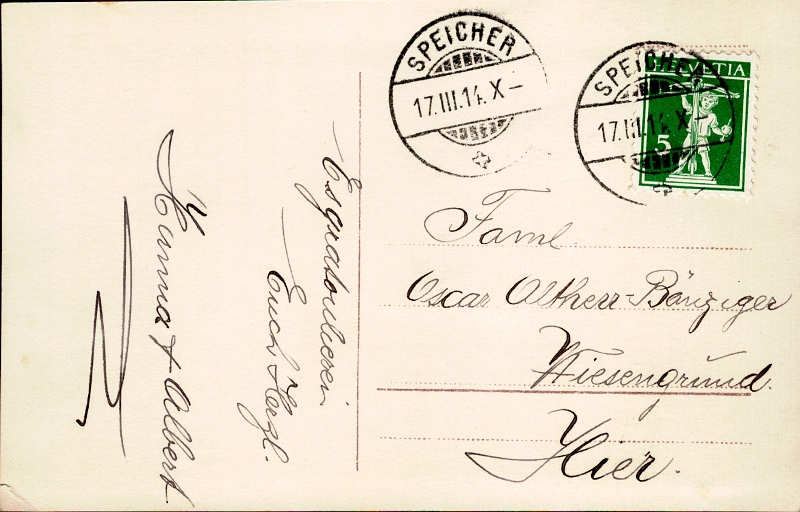 SPEICHER
17.III.14. X –
SPEICHER
17.III.14. X –
HELVETIA
5
Faml.
Oscar Altherr-Bänziger
Wiesengrund.
Hier.
Es gratulieren
Euch Herzl.
Hanna & Albert